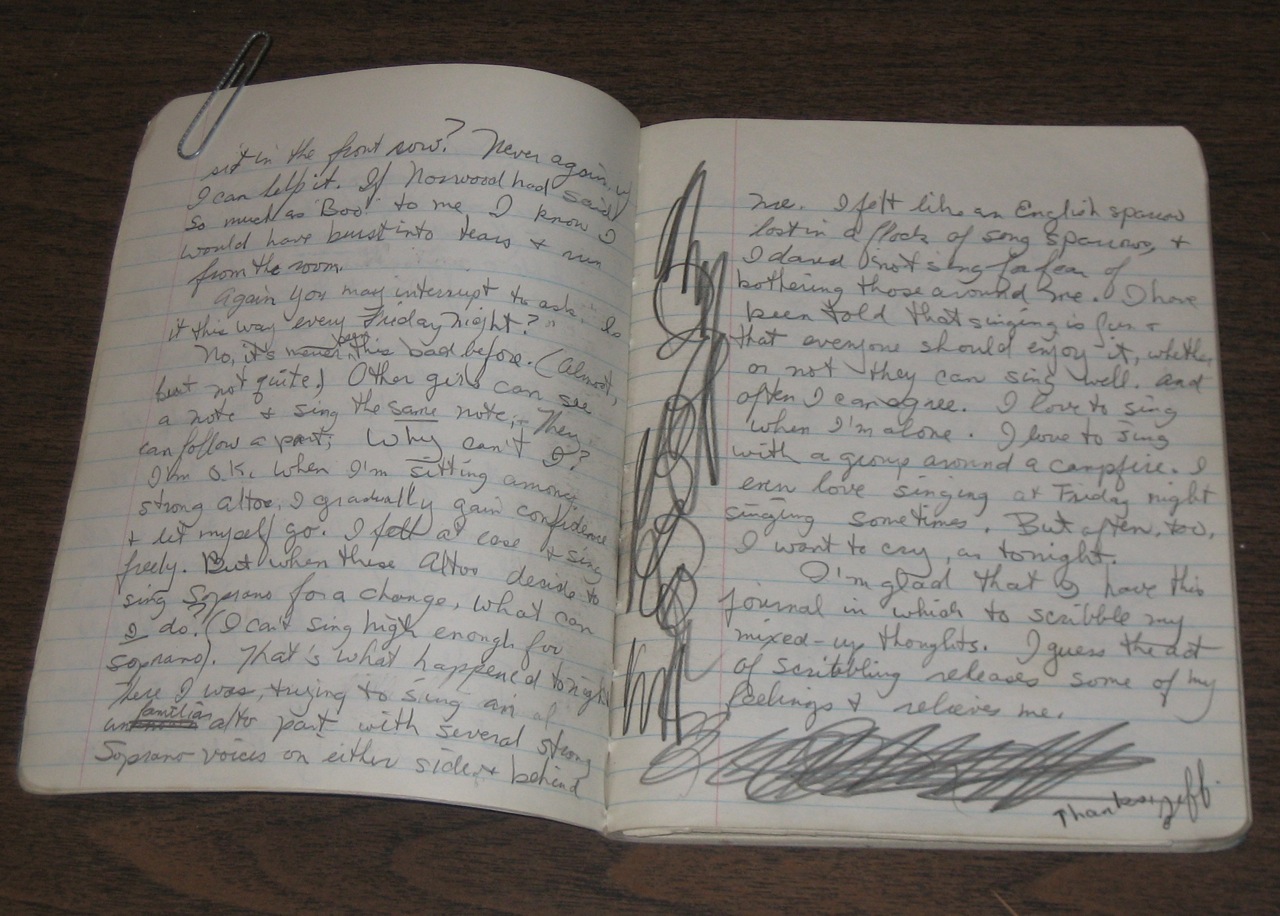 sit in the front row? Never again, if
I can help it. If Norwood had said
so much as "Boo" to me I know I
would have burst into tears & run
from the room.
Again you may interrupt to ask "Is
it this way every Friday night?"
No, it's never been this bad before. (Almost,
but not quite.) Other girls can see
a note & sing the same note. They
can follow a part; Why can't I?
I'm O.K. when I'm sitting among
strong altos, I gradually gain confidence
& let myself go. I felt at ease & sing
freely. But when these Altos decide to
sing Soprano for a change, what can
I do? (I can't sing high enough for
soprano). That's what happened tonight
There I was, trying to sing an
unfamiliar alto part with several strong
Soprano voices on either side & behind
me. I felt like an English sparrow
lost in a flock of song sparrows, &
I dared not sing for fear of
bothering those around me. I have
been told that singing is fun &
that everyone should enjoy it, whether
or not they can sing well. And
often I can agree. I love to sing
when I'm alone. I love to sing
with a group around a campfire. I
even love singing at Friday night
singing sometimes. But often, too,
I want to cry, as tonight.
I'm glad that I have this
journal in which to scribble my
mixed-up thoughts. I guess the act
of scribbling releases some of my
feelings & relieves me.